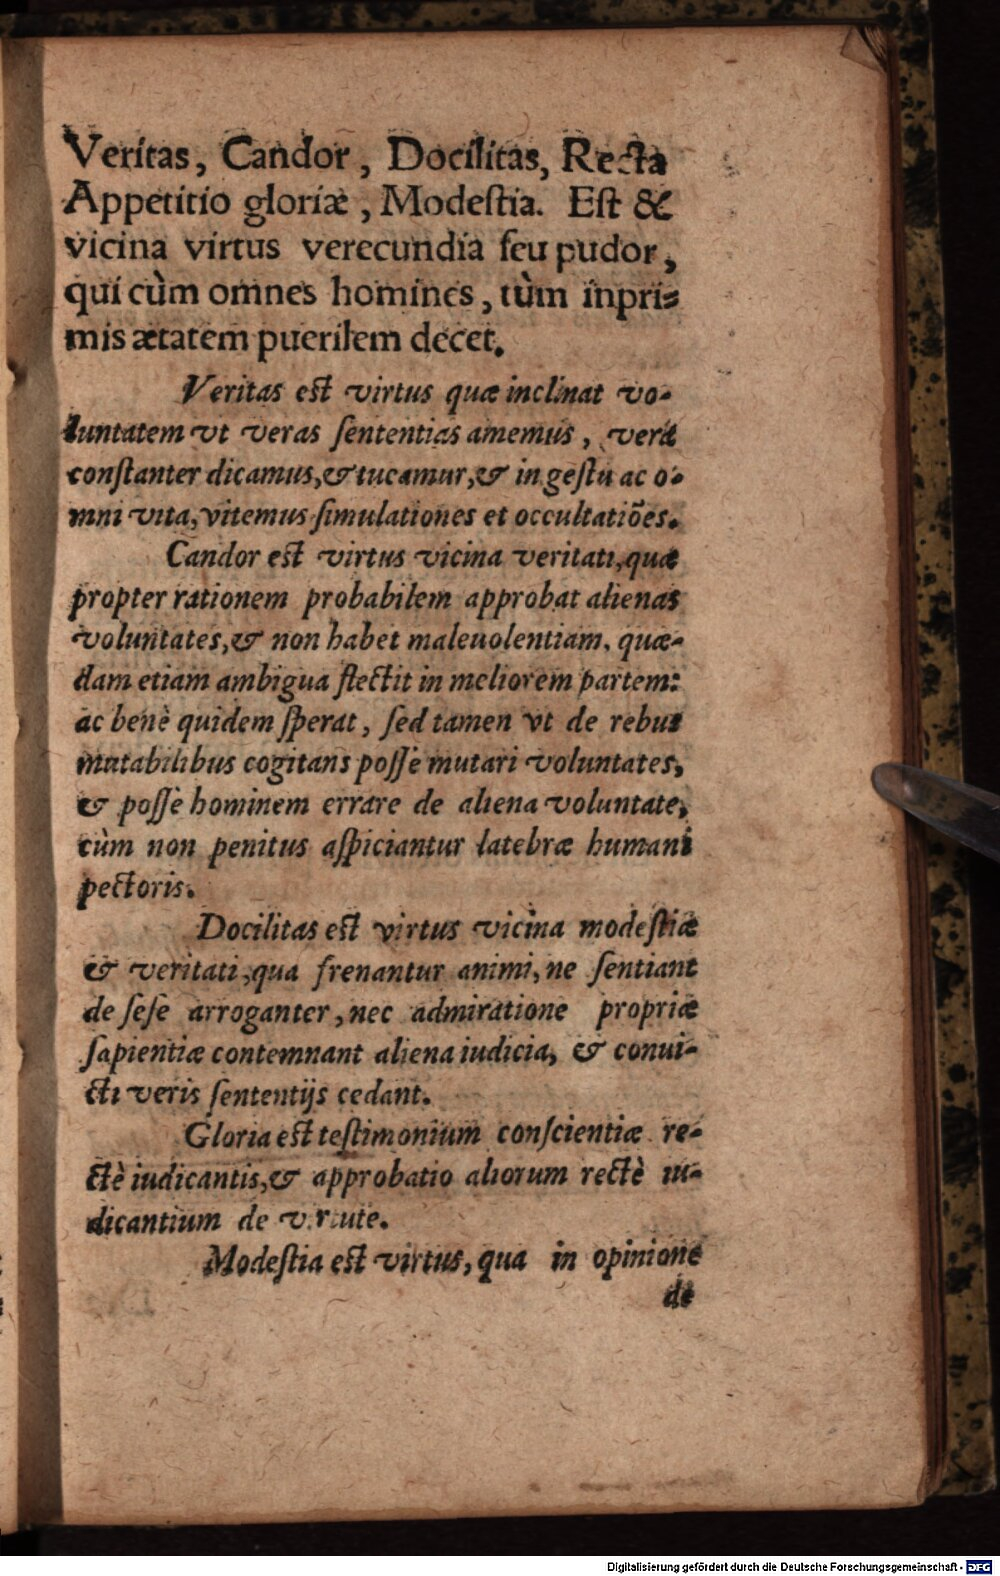 Veritas, Candor, Docilitas, Recta
Appetitio gloriæ, Modeſtia. Eſt &
vicina virtus verecundia ſeu pudor,
qui cùm omnes homines, tùm inpri-
mis ætatem puerilem decet.
Veritas eſt virtus quæ inclinat vo-
luntatem vt veras ſententias amemus, vera
conſtanter dicamus, & tueamur, & in geſtu ac o-
mni vita, vitemus ſimulationes et occultatiões.
Candor eſt virtus vicina veritati, quæ
propter rationem probabilem approbat alienas
voluntates, & non habet maleuolentiam. quæ-
dam etiam ambigua flectit in meliorem partem:
ac benè quidem ſperat, ſed tamen vt de rebus
mutabilibus cogitans poſſe mutari voluntates,
& poſſe hominem errare de aliena voluntate,
cùm non penitus aſpiciantur latebræ humani
pectoris.
Docilitas eſt virtus vicina modeſtiæ
& veritati, qua frenantur animi, ne ſentiant
de ſeſe arroganter, nec admiratione propriæ
ſapientiæ contemnant aliena iudicia, & conui-
cti veris ſententijs cedant.
Gloria eſt teſtimonium conſcientiæ re-
ctè iudicantis, & approbatio aliorum rectè iu-
dicantium de virtute.
Modeſtia eſt virtus, qua in opinione
de
Digitalisierung gefördert durch die Deutsche Forschungsgemeinschaft - DFG